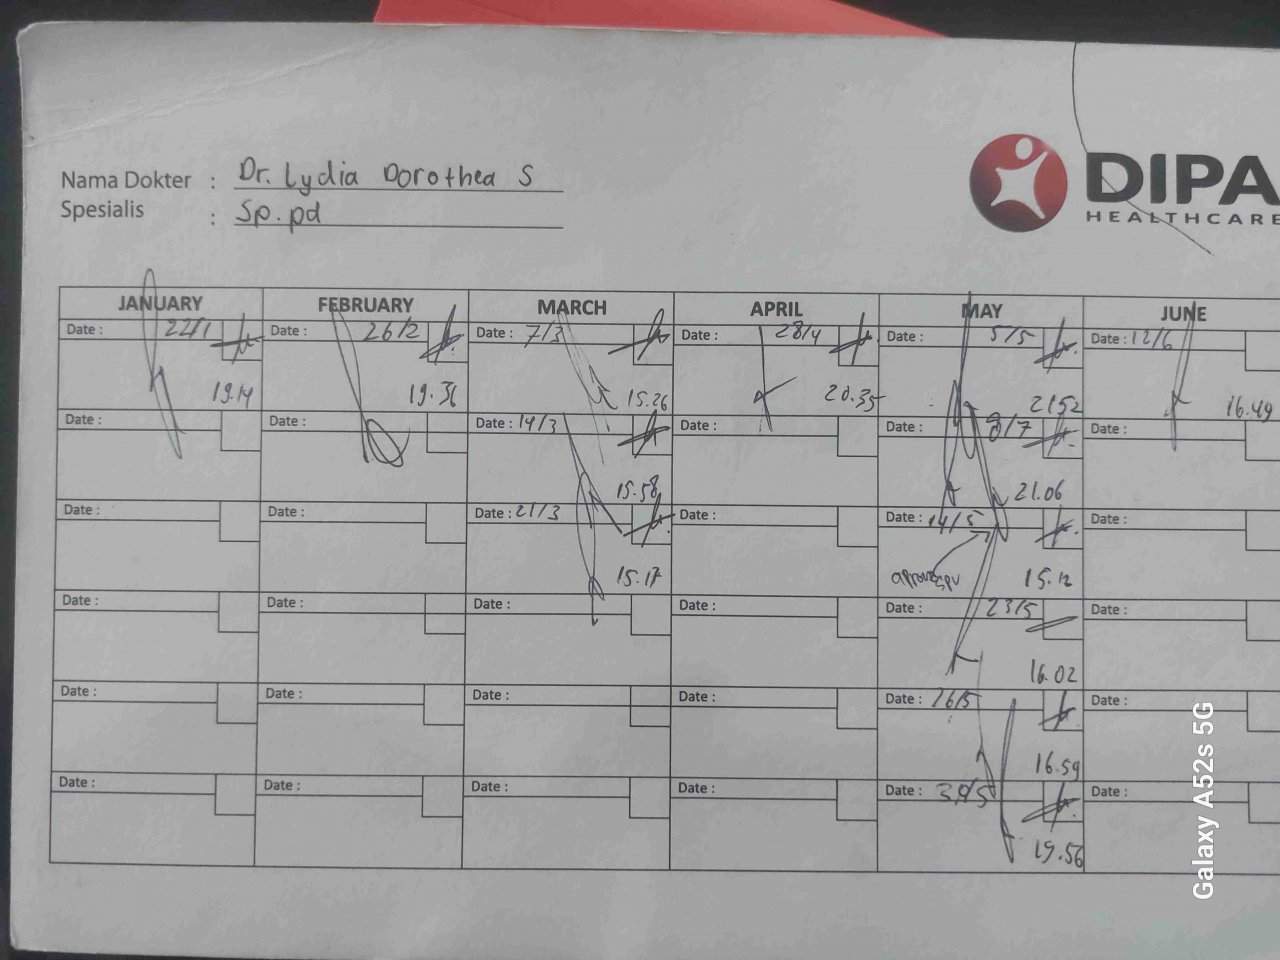 Nama Dokter : Dr. Lydia Dorothea S
Spesialis : Sp.pd
DIPA
HEALTHCARE
JANUARY FEBRUARY MARCH APRIL MAY JUNE
Date : 22/1 Date : 26/2 Date : 7/3 Date : 28/4 Date : 5/5 Date : 12/6
19.14 19.36 15.26 20.35 21.52 16.49
Date : Date : Date : 14/3 Date : Date : 8/7 Date :
15.58 21.06
Date : Date : Date : 21/3 Date : Date : 14/5 Date :
15.17 15.12
Date : Date : Date : Date : Date : 23/5 Date :
16.02
Date : Date : Date : Date : Date : 26/5 Date :
16.59
Date : Date : Date : Date : Date : Date :
19.56
Galaxy A52s 5G